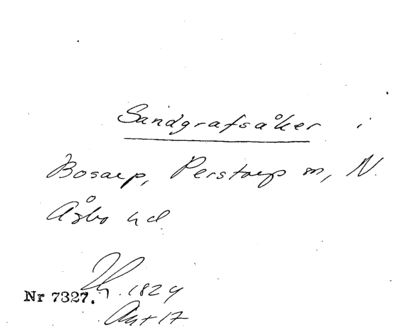 Sandgrafsåker i
Bosarp, Perstorp sn, N.
Åsbo hd
1824
Nr 7327.
Akt 17